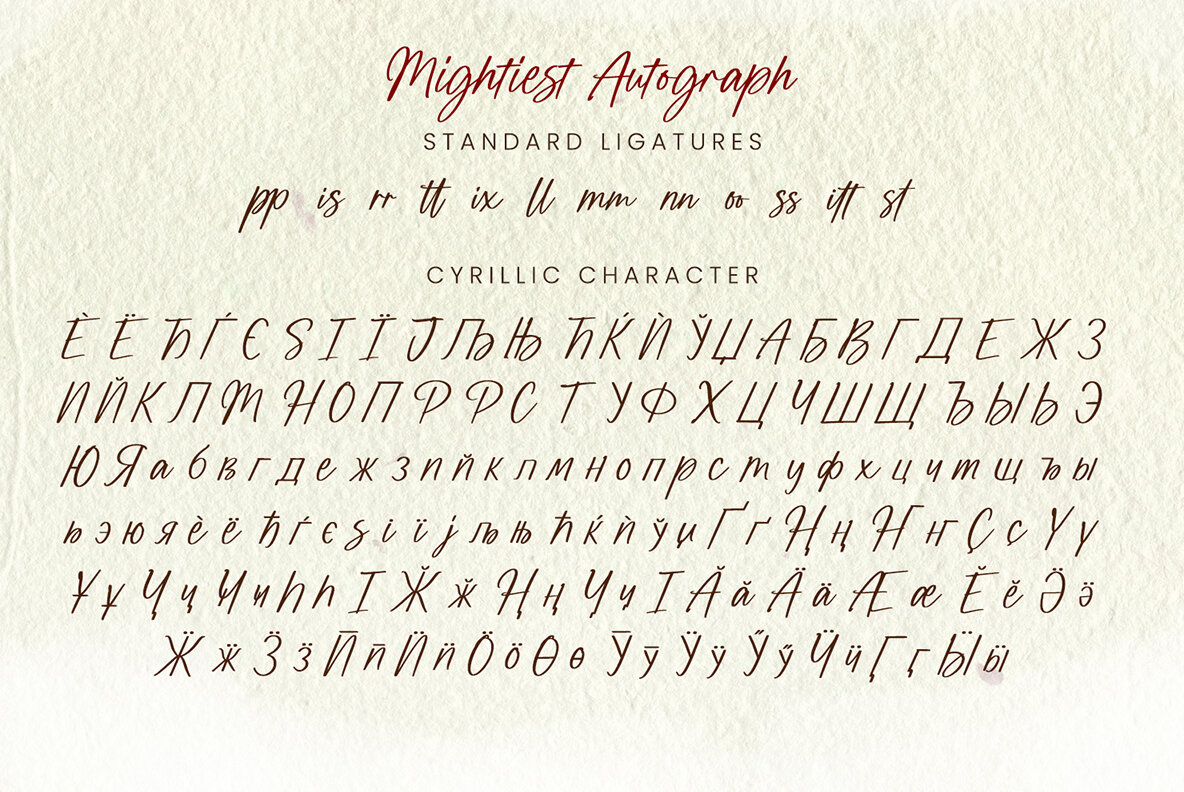 Mightiest Autograph
STANDARD LIGATURES
pp is rr tt ix ll mm nn oo ss itt st
CYRILLIC CHARACTER
Ѐ Ё Ђ Ѓ Є Ѕ І Ї Ј Љ Њ Ћ Ќ Ѝ Ў Џ А Б В Г Д Е Ж З
И Й К Л М Н О П Р Р С Т У Ф Х Ц Ч Ш Щ Ъ Ы Ь Э
Ю Я а б в г д е ж з и й к л м н о п р с т у ф х ц ч ш щ ъ ы
ь э ю я ѐ ё ђ ѓ є ѕ і ї ј љ њ ћ ќ ѝ ў џ Ґ ґ Ң ң Ҥ ҥ Ҫ ҫ Ү ү
Ұ ұ Ҷ ҷ Ҹ ҹ Һ һ Ӏ Ӂ ӂ Ӊ ӊ Ӌ ӌ Ӏ Ӑ ӑ Ӓ ӓ Ӕ ӕ Ӗ ӗ Ӛ ӛ
Ӝ ӝ Ӟ ӟ Ӣ ӣ Ӥ ӥ Ӧ ӧ Ө ө Ӯ ӯ Ӱ ӱ Ӳ ӳ Ӵ ӵ Ӷ ӷ Ӹ ӹ